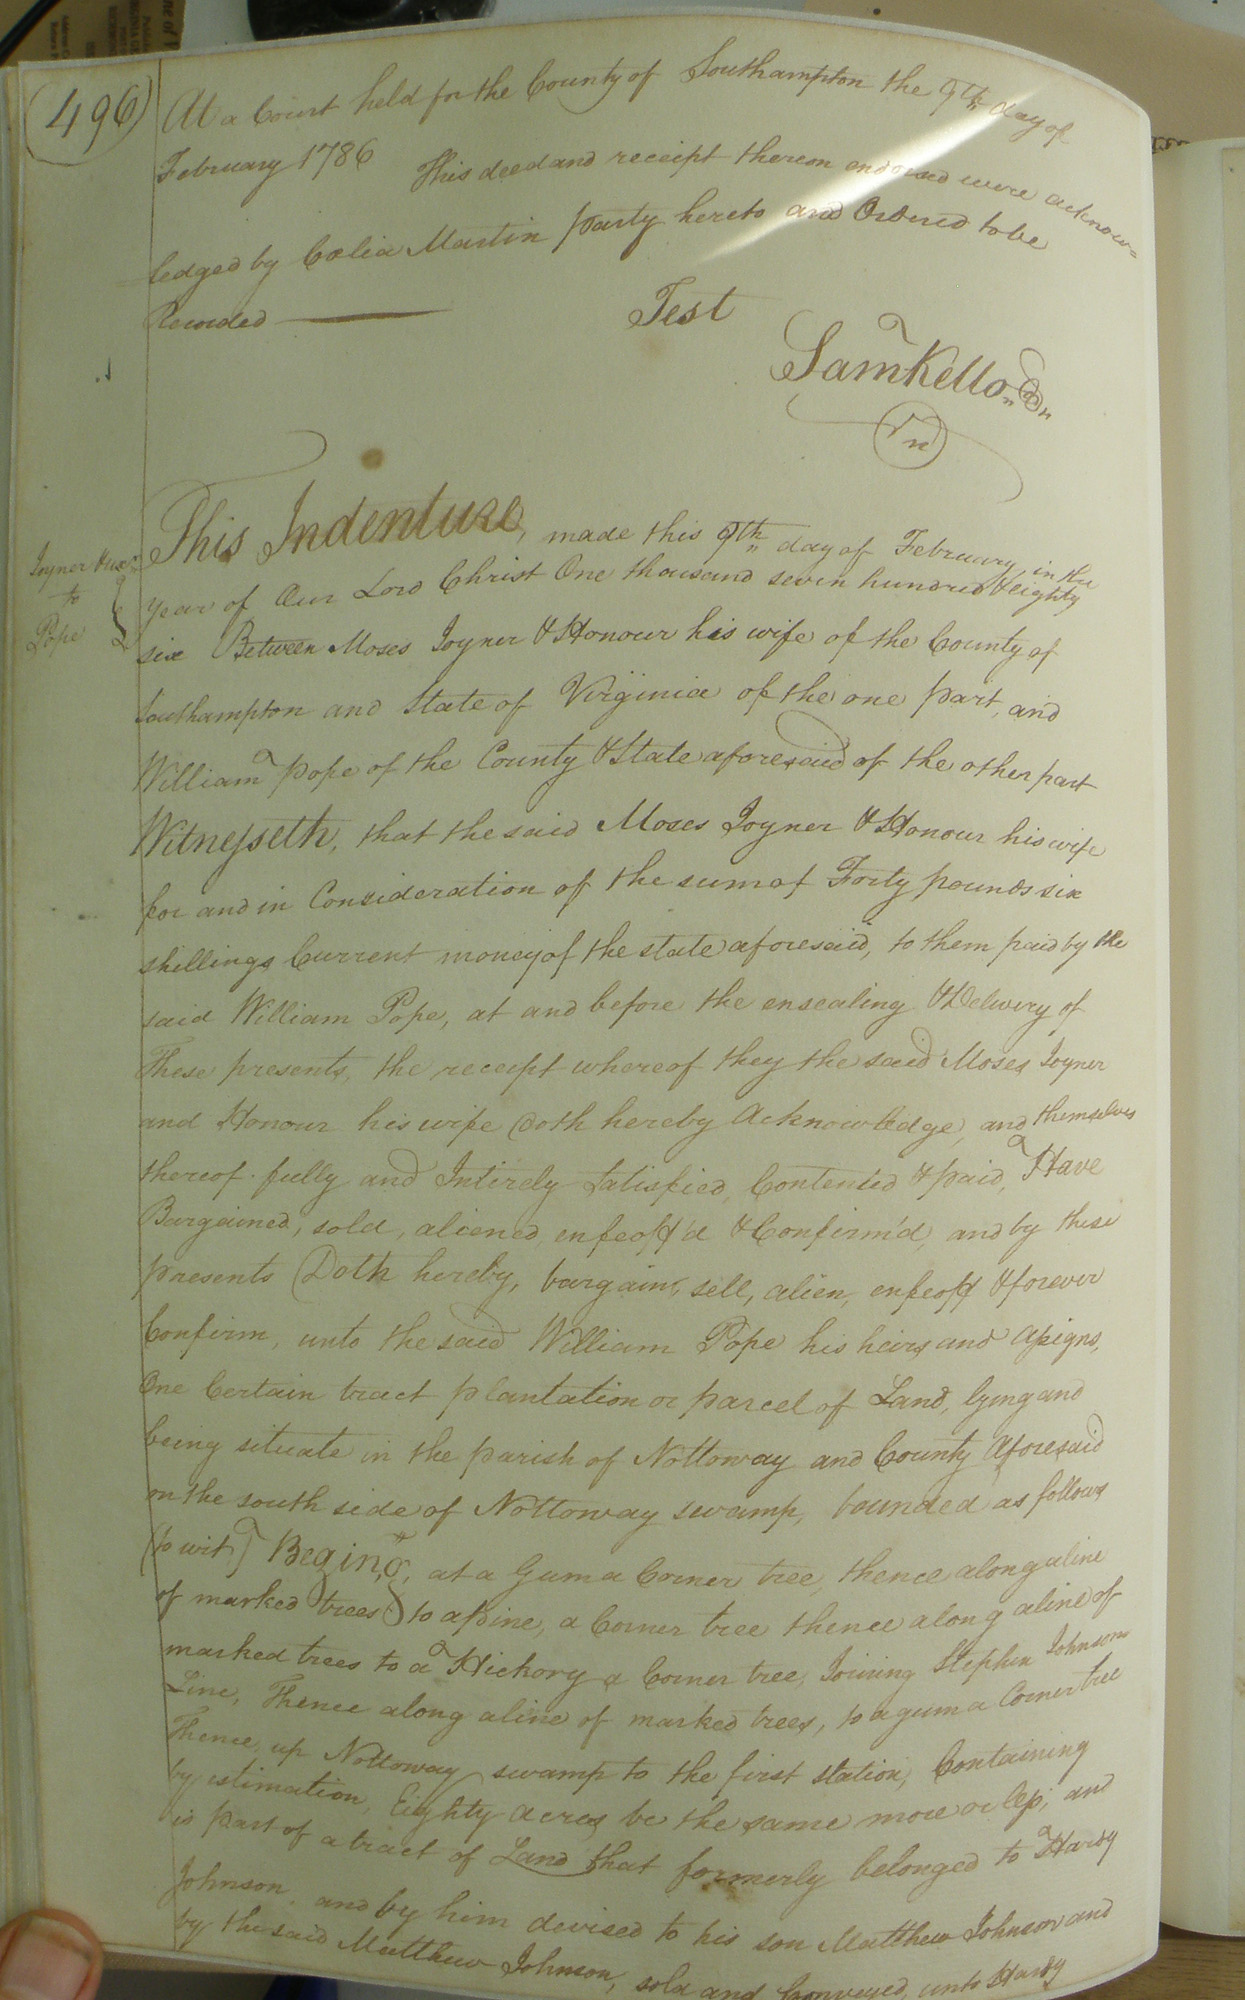 496
At a Court held for the County of Southampton the 9th day of
February 1786 This deed and receipt thereon endorsed were acknow=
ledged by Cælia Martin party hereto and Ordered to be
Recorded
Test
Sam Kello
Joyner & ux:
to
Pope
This Indenture, made this 9th day of February in the
year of Our Lord Christ One thousand seven hundred & eighty
six Between Moses Joyner & Honour his wife of the County of
Southampton and State of Virginia of the one part, and
William Pope of the County & State aforesaid of the other part
Witnesseth, that the said Moses Joyner & Honour his wife
for and in Consideration of the sum of Forty pounds six
shillings Current money of the state aforesaid, to them paid by the
said William Pope, at and before the ensealing & Delivery of
These presents, the receipt whereof they the said Moses Joyner
and Honour his wife Doth hereby Acknowledge, and themselves
thereof fully and Intirely Satisfied, Contented & paid, Have
Bargained, sold, aliened, enfeoff'd & Confirm'd, and by these
presents Doth hereby, bargain, sell, alien, enfeoff & forever
Confirm, unto the said William Pope his heirs and Assigns,
One Certain tract plantation or parcel of Land, lying and
being situate in the parish of Nottoway and County Aforesaid
on the south side of Nottoway swamp, bounded as follows
(to wit) Begin,g, at a Gum a Corner tree, thence along a line
of marked trees to a pine, a Corner tree thence along a line of
marked trees to a Hickory a Corner tree, Joining Stephen Johnsons
Line, Thence along a line of marked trees, to a gum a Corner tree
Thence, up Nottoway swamp to the first station, Containing
by estimation, Eighty acres be the same more or less; and
is part of a tract of Land that formerly belonged to Hardy
Johnson, and by him devised to his son Matthew Johnson and
by the said Matthew Johnson, sold and Conveyed, unto Hardy